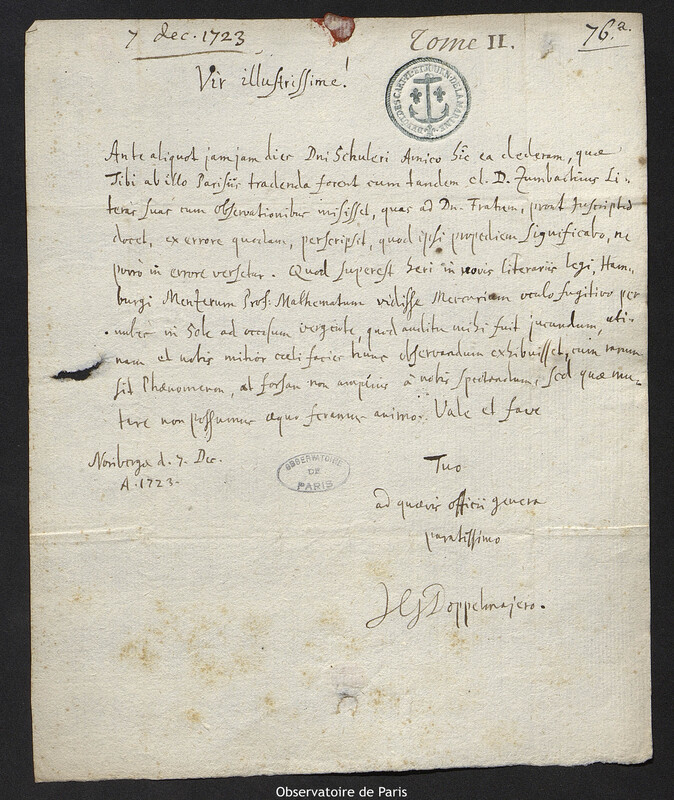 7 dec. 1723
Tome II.
76.a
DEPOT DES CARTES ET JOURN. DE LA MARINE
Vir illustrissime!
Ante aliquot jamjam dies Dni Schuleri Amico hîc ea dederam, quæ
Tibi ab illo Parisiis tradenda forent cum tandem cl. D. Zumbachius Li-
teras suas cum observationibus misisset, quas ad Dn. Fratrem, prout Inscriptio
docet, ex errore quodam, perscripsit, quod ipsi propediem significabo, ne
porro in errore versetur. Quod superest heri in novis literariis legi, Ham-
burgi Prof. Mathematum vidisse Mercurium oculo fugitivo per
nubes in Sole ad occasum vergente, quod auditu mihi fuit jucundum, uti-
nam et nobis mitior cœli facies hunc observandum exhibuisset, cum rarum
sit Phænomenon, at forsan non amplius à nobis spectandum, sed quæ mu-
tare non possumus æquo feramus animo. Vale et fave
Noriberga d. 7. Dec.
A. 1723.
OBSERVATOIRE
DE
PARIS
Tuo
ad quævis officii genera
paratissimo
JGDoppelmajero.
Observatoire de Paris